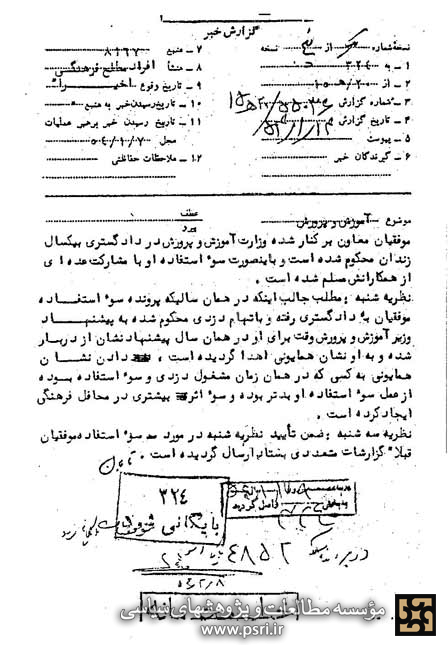 گزارش خبر
نسخه شماره از نسخه
۱ - به ۳۲۴
۲ - از ۲۰ ه ۱۵
۳ - شماره گزارش
۴ - تاریخ گزارش
۵ - پیوست
۶ - گیرندگان خبر
۷ - منبع ۸۱۶۷
۸ - منشأ افراد مطلع فرهنگی
۹ - تاریخ وقوع اخیراً
۱۰ - تاریخ رسیدن خبر به منبع
۱۱ - تاریخ رسیدن خبر برهبر عملیات
محل ۵۴/۱/۷
۱۲ - ملاحظات حفاظتی
موضوع آموزش و پرورش
عطف
پیرو
موفقیان معاون برکنار شده وزارت آموزش و پرورش در دادگستری بیکسال
زندان محکوم شده است و باینصورت سوء استفاده او با مشارکت عده ای
از همکارانش مسلم شده است .
نظریه شنبه : مطلب جالب اینکه در همان سالیکه پرونده سوء استفاده
موفقیان به دادگستری رفته و باتهام دزدی محکوم شده به پیشنهاد
وزیر آموزش و پرورش وقت برای او در همان سال پیشنهاد نشان از دربار
شده و به او نشان همایونی اهدا گردیده است ، دادن نشان
همایونی به کسی که در همان زمان مشغول دزدی و سوء استفاده بوده
از عمل سوء استفاده او بدتر بوده و سوء اثر بیشتری در محافل فرهنگی
ایجاد کرده است .
نظریه سه شنبه : ضمن تأیید نظریه شنبه در مورد سوء استفاده موفقیان
قبلا گزارشات متعددی بستاد ارسال گردیده است .
۳۲۴
بایگانی شود
۴۸۵۲
مؤسسه مطالعات و پژوهشهای سیاسی
www.psri.ir